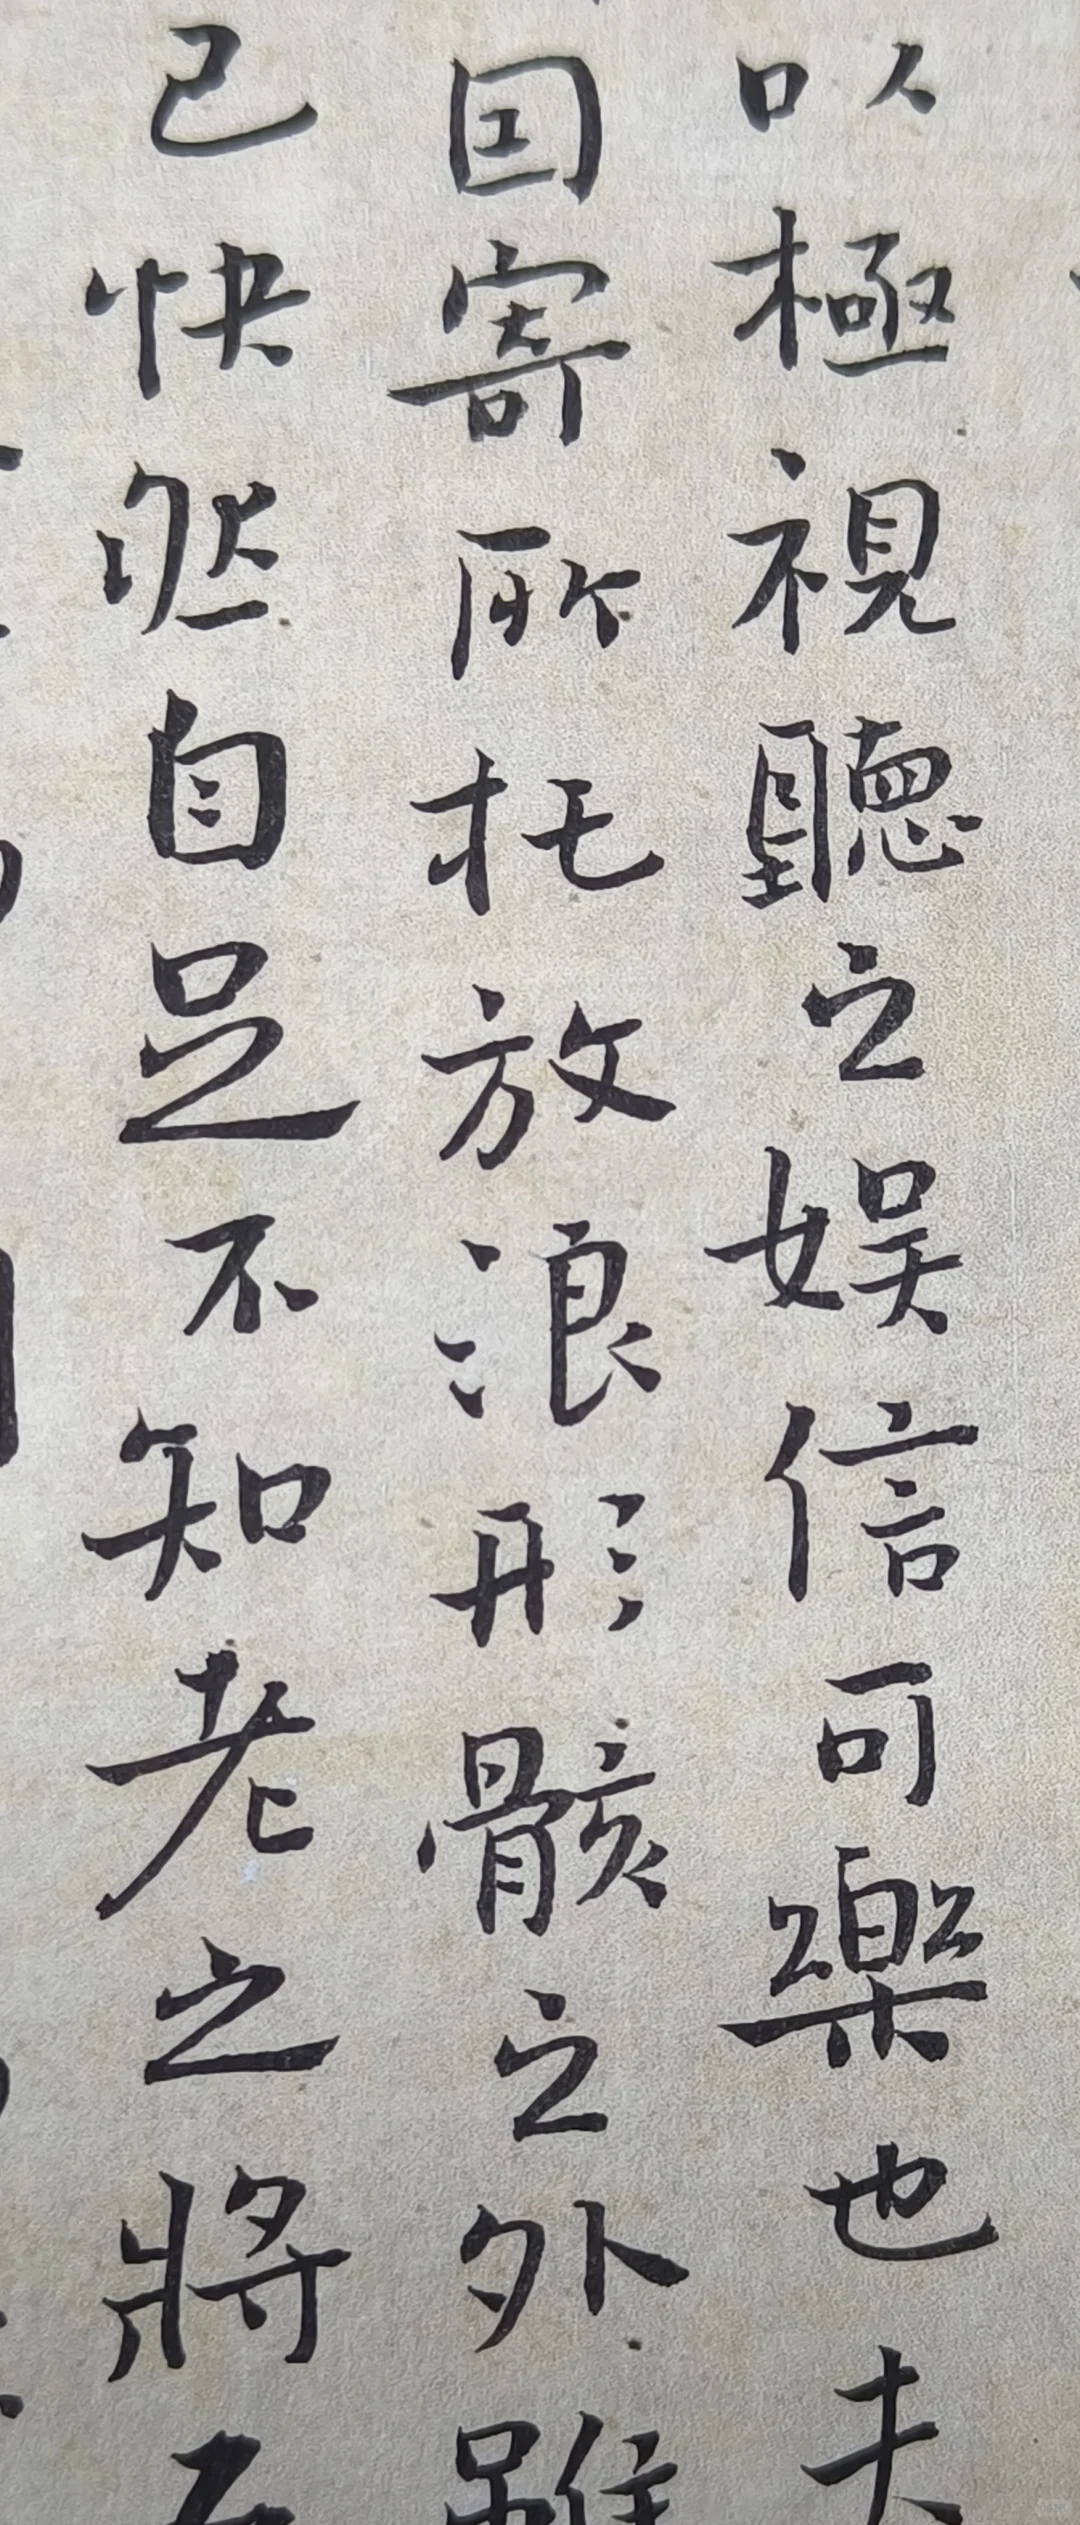 以極視聽之娱信可樂也夫
因寄所托放浪形骸之外雖
己快然自足不知老之將至